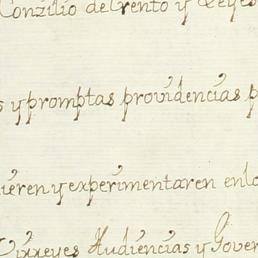 Conzilio de Trento y Leyes
s y promptas providencias p
ieren y experimentaren en lo
Virreyes Audiencias y Gover